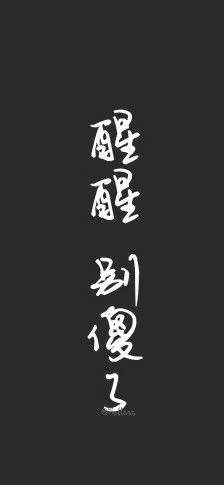 醒醒 别傻了